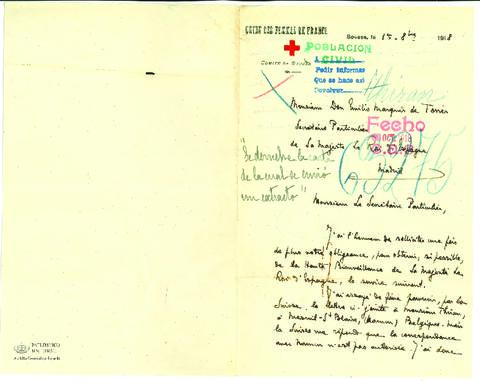 UNION DES FEMMES DE FRANCE
Sousse, le 1er 8bre 1918
POBLACION
CIVIL
COMITÉ DE SOUSSE
Pedir informes
Que se hace así
Devolver
Thirion
Monsieur Don Emilio Marquis de Torres
Secrétaire Particulier
Fecho
de Sa Majesté Le Roi d'Espagne
Madrid
"Se devuelve la carta
de la cual se envió
un extracto"
Monsieur Le Secrétaire Particulier,
J'ai l'honneur de solliciter une fois
de plus votre obligeance, pour obtenir, si possible,
de la Haute Bienveillance de Sa Majesté Le
Roi d'Espagne, le service suivant.
J'ai essayé de faire parvenir, par la
Suisse, la lettre ci-jointe à Monsieur Thirion,
à Mesnil-St Blaise, (Namur) Belgique. Mais
la Suisse me répond que la correspondance
avec Namur n'est pas autorisée. J'ai donc
PATRIMONIO
NACIONAL